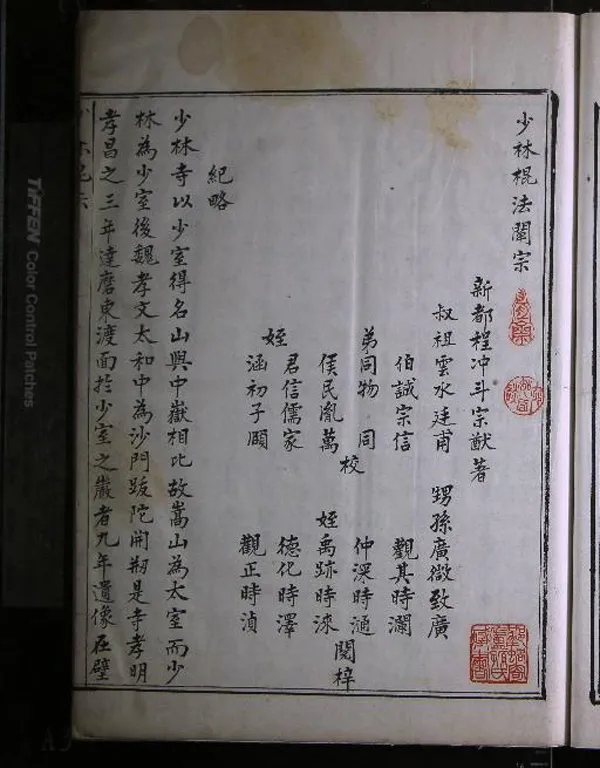 少林棍法闡宗
新都程冲斗宗猷著
叔祖雲水廷甫 甥孫廣微致廣
伯誠宗信 觀其時瀾
弟同物 同 仲深時通
侯民胤萬 校 姪禹跡時淶 閱梓
姪君信儒家 德化時澤
涵初子頤 觀正時湞
紀略
少林寺以少室得名山與中嶽相比故嵩山為太室而少
林為少室後魏孝文太和中為沙門跋陀開剏是寺孝明
孝昌之三年達磨東渡面於少室之巖者九年遺像在壁
TIFFEN Color Control Patches